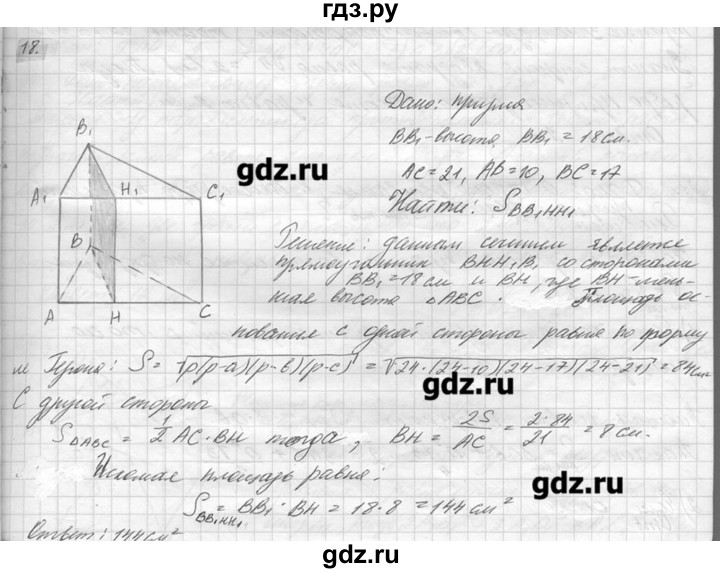 гдз.ру
18.
Дано: призма
BB₁-высота, BB₁ = 18 см.
AC = 21, AB = 10, BC = 17
Найти: S BB₁HH₁
B₁
A₁ H₁ C₁
B
A H C
gdz.ru
gdz.ru
Решение: данным сечением является
прямоугольник BHH₁B₁ со сторонами
BB₁ = 18 см и BH, где BH - мень-
шая высота △ABC. Площадь ос-
нования с одной стороны равна по форму
ле Герона: S = √p(p-a)(p-b)(p-c) = √24·(24-10)(24-17)(24-21) = 84 см
gdz.ru
С другой стороны
S△ABC = 1/2 AC·BH тогда, BH = 2S/AC = 2·84/21 = 8 см.
Искомая площадь равна:
gdz.ru
S BB₁HH₁ = BB₁·BH = 18·8 = 144 см²
Ответ: 144 см²
gdz.ru